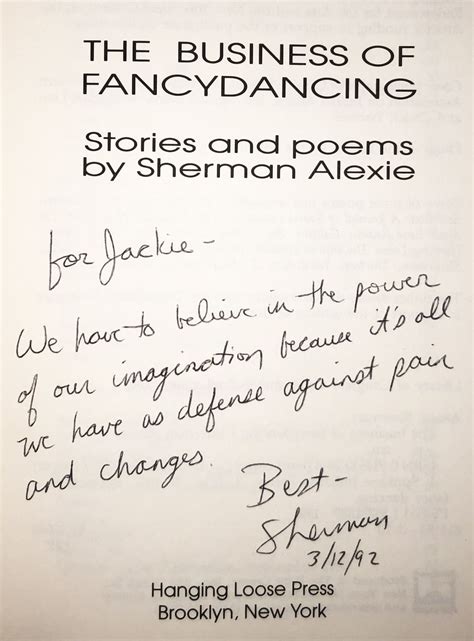 THE BUSINESS OF
FANCYDANCING
Stories and poems
by Sherman Alexie
for Jackie -
We have to believe in the power
of our imagination because it's all
we have as defense against pain
and changes.
Best-
Sherman
3/12/92
Hanging Loose Press
Brooklyn, New York